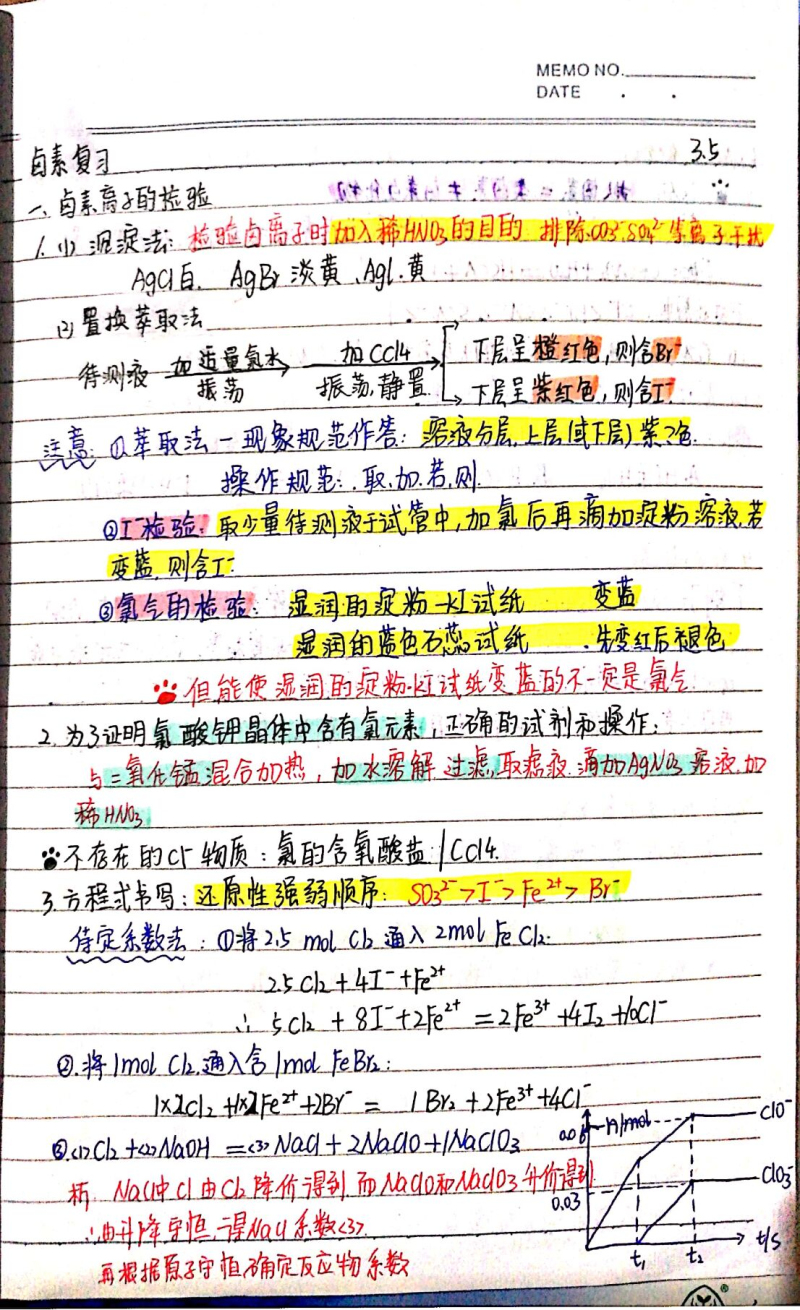 MEMO NO.
DATE . .
3.5
卤素复习
一、卤素离子的检验
1. (1) 沉淀法: 检验卤离子时加入稀HNO3的目的 排除CO3²⁻.SO4²⁻等离子干扰
AgCl白. AgBr 淡黄. AgI.黄
(2) 置换萃取法
待测液 加适量氯水 振荡 → 加CCl4 振荡,静置 → 下层呈橙红色,则含Br⁻
下层呈紫红色,则含I⁻
注意: ①萃取法 — 现象规范作答: 溶液分层,上层(或下层)紫?色.
操作规范: .取.加.若.则.
②I⁻检验: 取少量待测液于试管中,加氯后再滴加淀粉溶液.若
变蓝,则含I⁻
③氯气的检验: 湿润的淀粉—KI试纸 变蓝
湿润的蓝色石蕊试纸 .先变红后褪色
但能使湿润的淀粉-KI试纸变蓝的不一定是氯气.
2. 为了证明氯酸钾晶体中含有氯元素,正确的试剂和操作:
与二氧化锰混合加热,加水溶解.过滤,取滤液.滴加AgNO3溶液.加
稀HNO3
不存在的Cl⁻物质: 氯的含氧酸盐 / CCl4.
3. 方程式书写: 还原性强弱顺序: SO3²⁻>I⁻>Fe²⁺>Br⁻
待定系数法: ①将2.5 mol Cl2 通入2mol FeCl2.
2.5Cl2+4I⁻+Fe²⁺
∴ 5Cl2 + 8I⁻+2Fe²⁺ =2Fe³⁺ +4I2 +10Cl⁻
②.将1mol Cl2.通入含1mol FeBr2:
1×2Cl2 +1×2Fe²⁺+2Br⁻ = 1Br2 +2Fe³⁺+4Cl⁻
③.<1>Cl2 +<2>NaOH =<3>NaCl+2NaClO+1NaClO3
析. NaCl中Cl由Cl2降价得到.而NaClO和NaClO3升价得到
∴由升降守恒,得NaCl系数<3>.
再根据原子守恒确定反应物系数
n/mol
0.06
ClO⁻
ClO3⁻
0.03
t1 t2 t/s